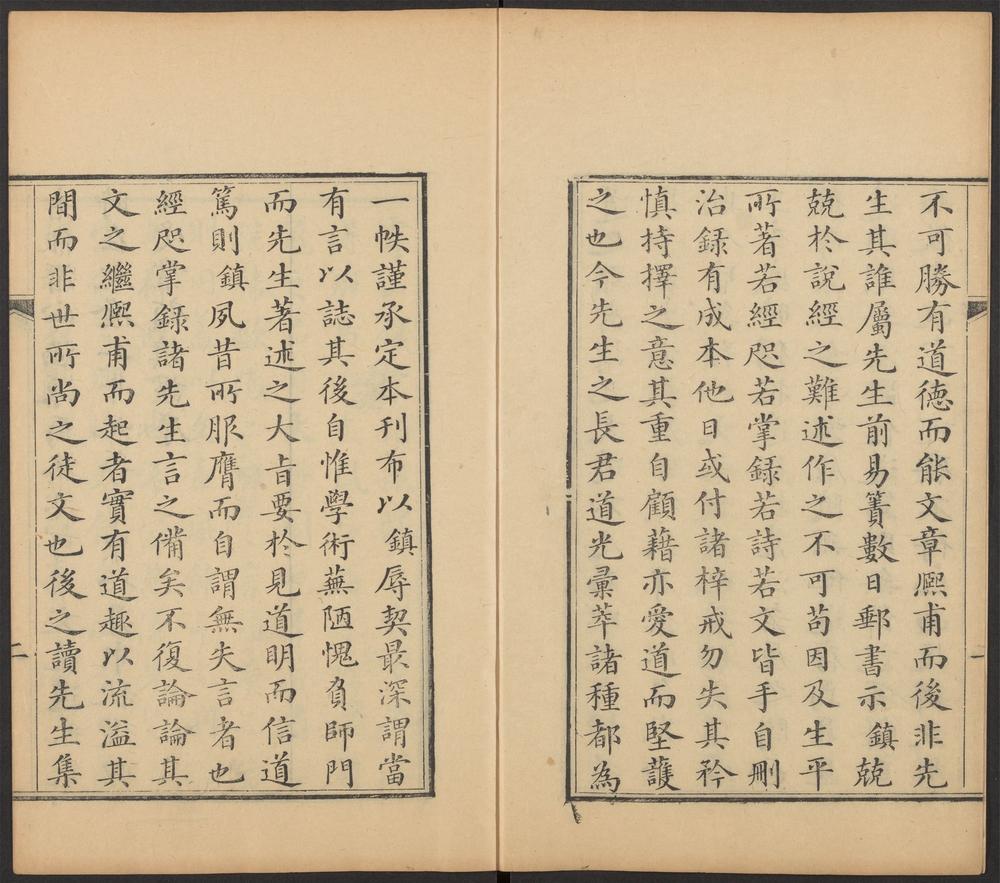 不可勝有道德而能文章熙甫而後非先
生其誰屬先生前易簀數日郵書示鎮兢
兢於說經之難述作之不可茍因及生平
所著若經咫若掌錄若詩若文皆手自刪
治錄有成本他日或付諸梓戒勿失其矜
慎持擇之意其重自顧藉亦愛道而堅護
之也今先生之長君道光彚萃諸種都為
一
一帙謹承定本刊布以鎮辱契最深謂當
有言以誌其後自惟學術蕪陋愧負師門
而先生著述之大旨要於見道明而信道
篤則鎮夙昔所服膺而自謂無失言者也
經咫掌錄諸先生言之備矣不復論論其
文之繼熙甫而起者實有道趣以流溢其
間而非世所尚之徒文也後之讀先生集
二